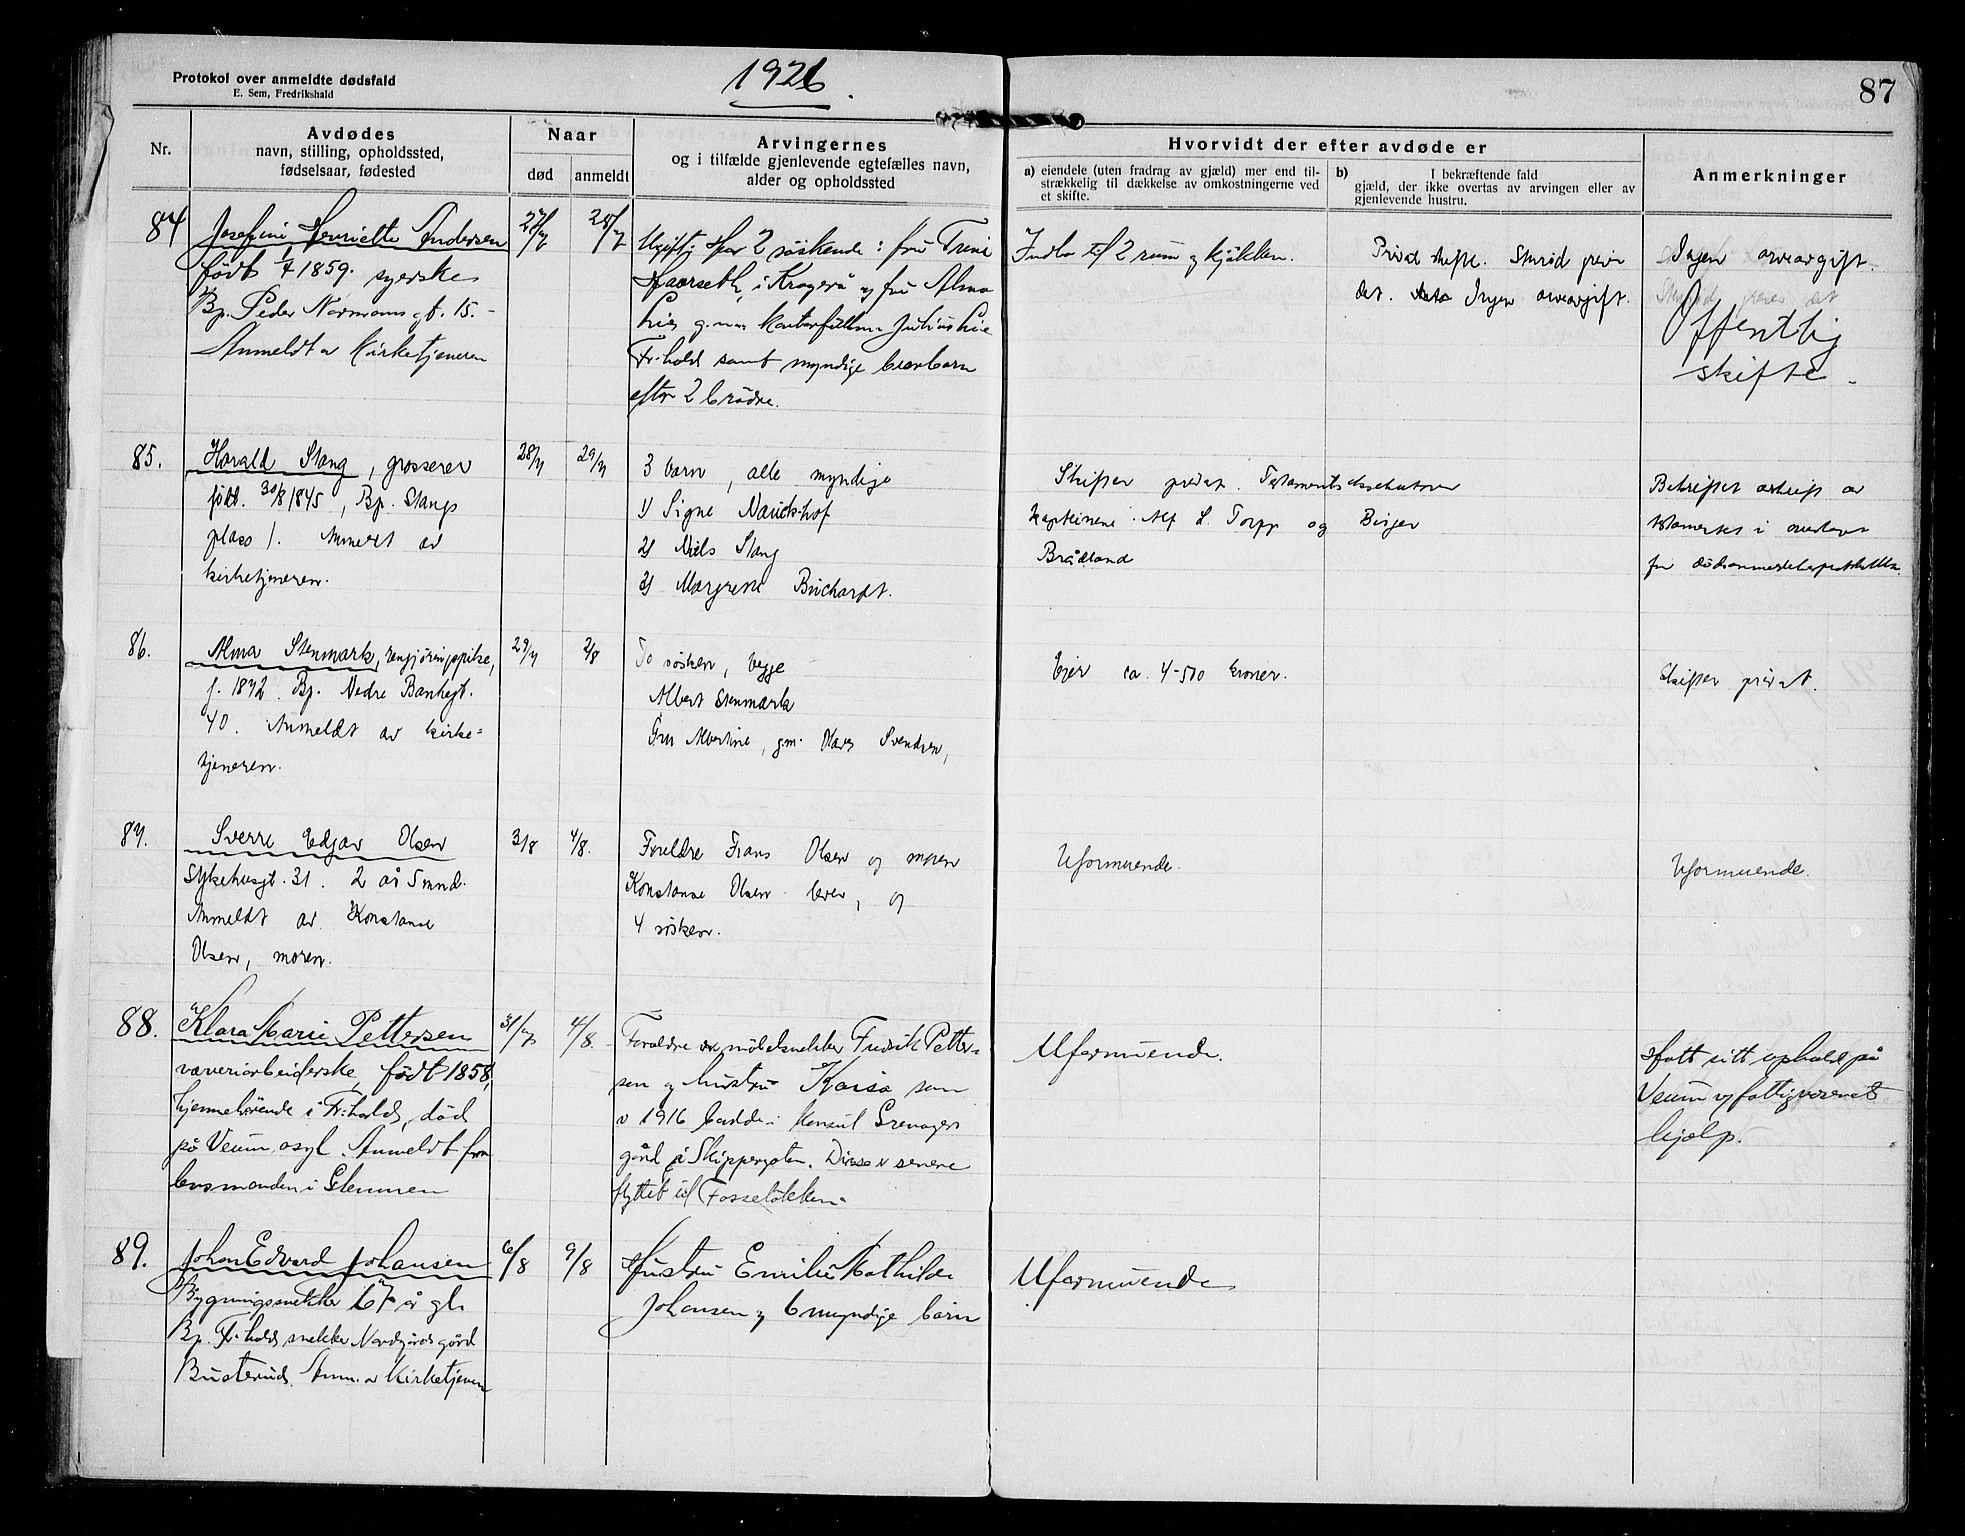 Protokol over anmeldte dødsfald
E. Sem, Fredrikshald
1926.
87
Nr.
Avdødes
navn, stilling, opholdssted,
fødselsaar, fødested
Naar
død
anmeldt
Arvingernes
og i tilfælde gjenlevende egtefælles navn,
alder og opholdssted
Hvorvidt der efter avdøde er
a) eiendele (uten fradrag av gjæld) mer end til-
strækkelig til dækkelse av omkostningerne ved
et skifte.
b) I bekræftende fald
gjæld, der ikke overtas av arvingen eller av
gjenlevende hustru.
Anmerkninger
84
Josefine Henriette Andersen
født 1/4 1859. syerske
Bp. Peder Normansgt. 15.-
Anmeldt av Kirketjeneren
27/7
28/7
Ugift; Har 2 søskende: fru Trine
Haarseth, i Kragerø og fru Alma
Lie, g.m. kontorfullm. Julius Lie
Fr.hald samt myndige brorbarn
efter 2 brødre.
Indbo til 2 rum og kjøkken.
Privat skifte.
det. Ingen arveavgift.
Ingen arveavgift.
Offentlig
skifte.
85.
Harald Stang, grosserer
født. 30/8 1845, Bp. Stangs
plass 1. Anmeldt av
kirketjeneren.
28/7
29/7
3 barn, alle myndige
1) Signe Nauckhof
2) Niels Stang
3) Margrete Buchardt.
Skifter privat. Testamentseksekutorer
kapteinene Alf L. Torpp og Birger
Brådland
Bekreftet avskrift av
testamentet i omslaget
for dødsanmeldelsesprotokollen.
86.
Alma Stenmark, rengjøringspike,
f. 1872. Bp. Nedre Bankegt.
40. Anmeldt av kirke=
tjeneren.
29/7
2/8
To søsken, begge
Albert Stenmark
Fru Albertine, g.m. Olaves Svendsen,
Eier ca. 4-500 kroner.
Skifter privat.
87.
Sverre Edgar Olsen
Sykehusgt. 31. 2 år 5 mnd.
Anmeldt av Konstanse
Olsen, moren.
3/8
4/8.
Foreldre Frans Olsen og moren
Konstanse Olsen lever, og
4 søsken.
Uformuende.
Uformuende.
88.
Klara Marie Pettersen
væveriarbeiderske, født 1858,
hjemmehørende i Fr.hald, død
på Veum asyl. Anmeldt fra
lensmanden i Glemmen
31/7
4/8.
Forældre møbelsnekker Fredrik Petter-
sen og hustru Kaisa som
i 1916 bodde i konsul Grenagers
gård i Skippergaten. Disse senere
flyttet til Fosseløkken.
Uformuende.
Hatt sitt ophold på
Veum ved fattigvæsenets
hjælp.
89.
Johan Edvard Johansen
Bygningssnekker 67 år gl.
Bp. Fr.hald, snekker Nordgårds gård
Busterud. Anm. av Kirketjeneren
6/8
9/8
Hustru Emilie Mathilde
Johansen og 6 myndige barn
Uformuende